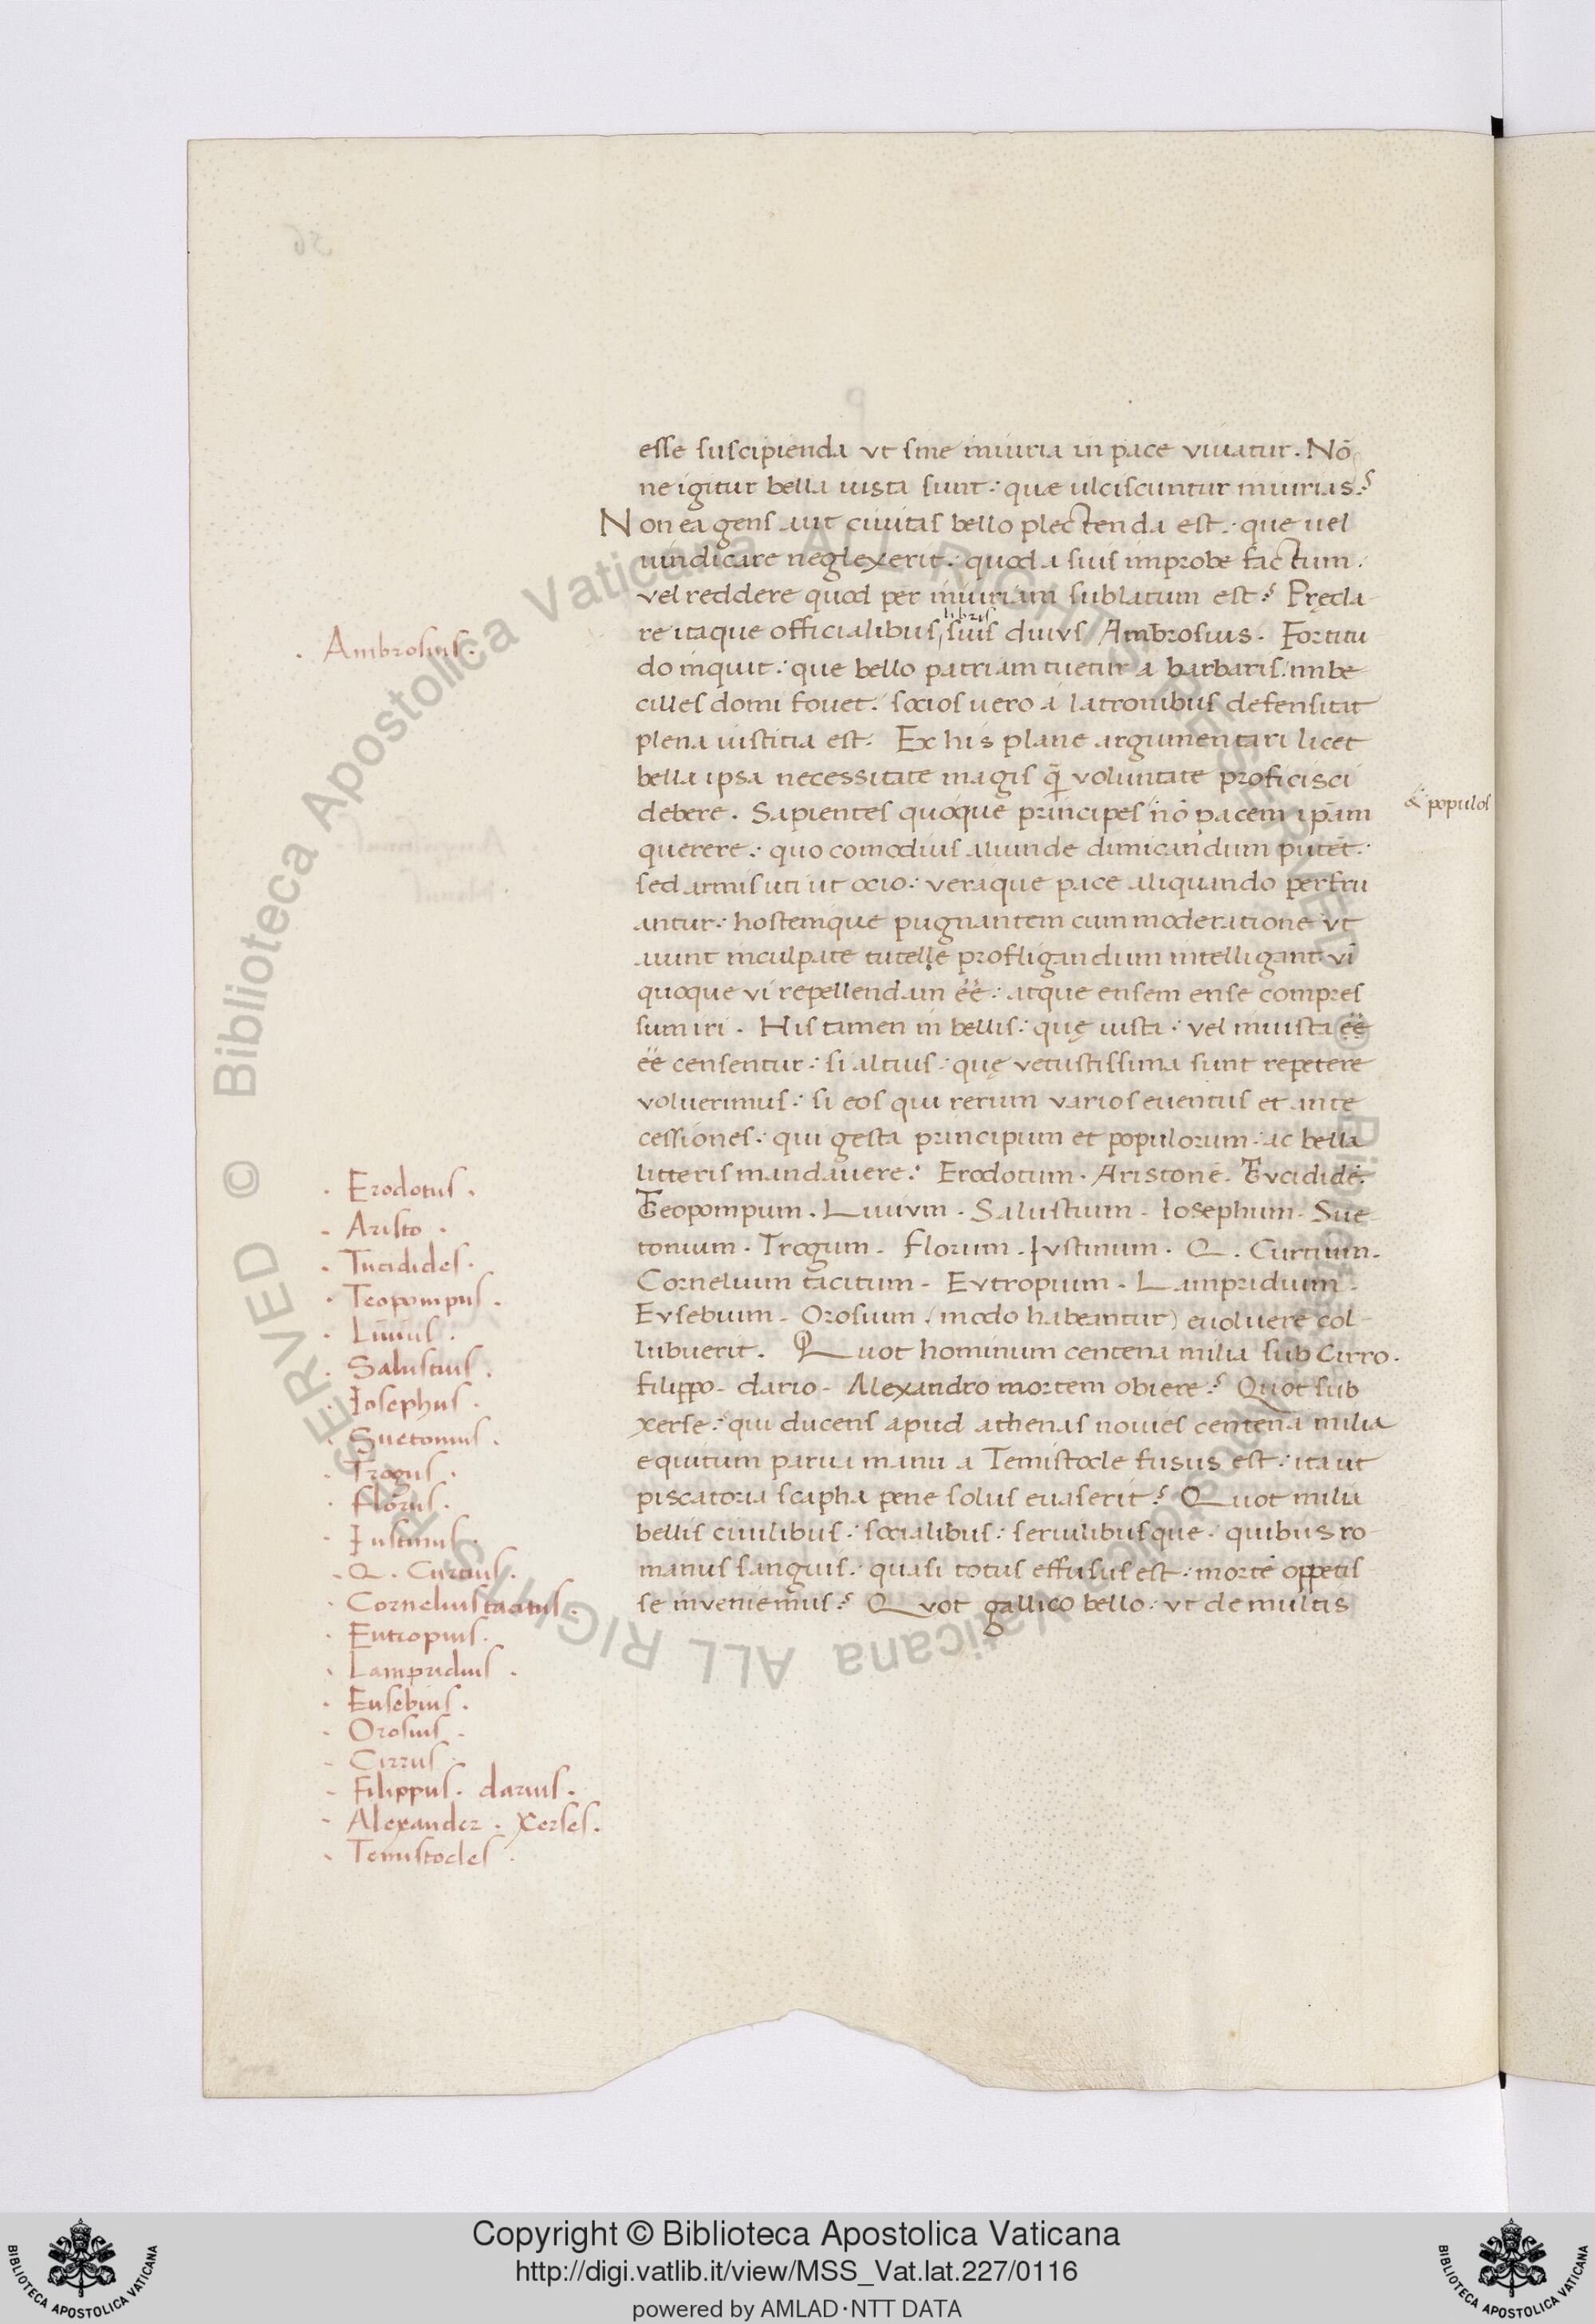 esse suscipienda vt sine iniuria in pace viuatur. Nō
ne igitur bella iusta sunt: quæ ulciscuntur iniurias?
Non ea gens aut ciuitas bello plectenda est: que uel
uindicare neglexerit: quod a suis improbe factum:
vel reddere quod per iniuriam sublatum est? Pręcla
libris
re itaque officialibus suis diuus Ambrosius. Fortitu
. Ambrosius.
do inquit: que bello patriam tuetur a barbaris: imbe
cilles domi fouet: socios uero a latronibus defensitat
plena iusticia est. Ex his plane argumentari licet
bella ipsa necessitate magis q̄ voluntate proficisci
debere. Sapientes quoque principes nō pacem ipām
& populos
querere: quo comodius aliunde dimicandum putēt:
sed armis uti ut ocio: veraque pace aliquando perfru
antur: hostemque pugnantem cum moderatione vt
aiunt inculpate tutelle profligandum intelligant: vī
quoque vi repellendam ēē: atque ensem ense compres
sum iri. His tamen in bellis: quę iusta: vel iniusta ēē
ēē censentur: si altius: quę vetustissima sunt repetere
voluerimus: si eos qui rerum varios euentus et ante
cessiones: qui gesta principum et populorum: ac bella
litteris mandauere: Erodotum. Aristonē. Tucididē.
. Erodotus.
Teopompum. Liuium. Salustium. Iosephum. Sue
. Aristo.
tonium. Trogum. Florum. Iustinum. Q. Curtium.
. Tucidides.
Cornelium tacitum. Eutropium. Lampridium.
. Teopompus.
Eusebium. Orosium. (modo habeantur) euoluere col
. Liuius.
lubuerit. Quot hominum centena milia sub Cirro.
. Salustius.
filippo. dario. Alexandro mortem obiere? Quot sub
. Iosephus.
xerse: qui ducens apud athenas nouies centena milia
. Suetonius.
equitum parua manu a Temistocle fusus est: ita ut
. Trogus.
piscatoria scapha pene solus euaserit? Quot milia
. Florus.
bellis ciuilibus: socialibus: seruilibusque: quibus ro
. Iustinus.
manus sanguis: quasi totus effusus est: mortē oppetis
. Q. Curtius.
se inueniemus? Quot gallico bello: vt de multis
. Cornelius tacitus.
. Eutropius.
. Lampridius.
. Eusebius.
. Orosius.
. Cirrus.
. Filippus. darius.
. Alexander. Xerses.
. Temistocles.
© Biblioteca Apostolica Vaticana ALL RIGHTS RESERVED
© Biblioteca Apostolica Vaticana ALL RIGHTS RESERVED
Copyright © Biblioteca Apostolica Vaticana
http://digi.vatlib.it/view/MSS_Vat.lat.227/0116
powered by AMLAD·NTT DATA
BIBLIOTECA APOSTOLICA VATICANA
BIBLIOTECA APOSTOLICA VATICANA